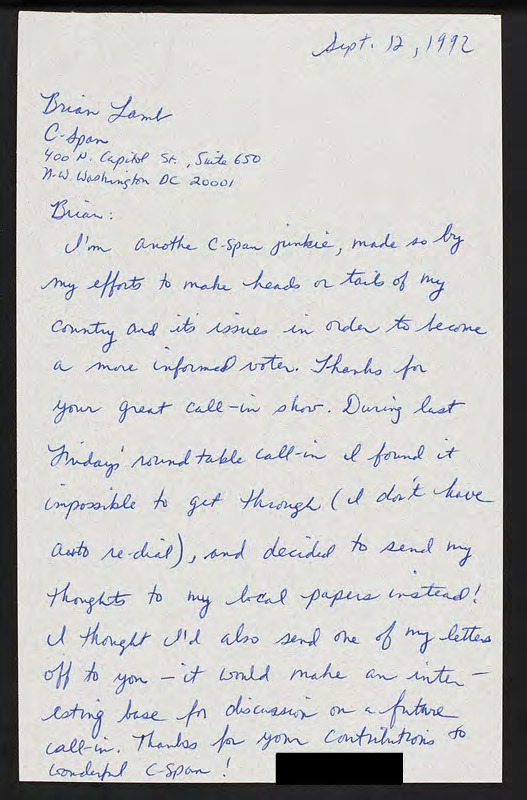 Sept. 12, 1992
Brian Lamb
C-Span
400 N. Capitol St., Suite 650
N.W. Washington DC 20001
Brian:
I'm anothe C-Span junkie, made so by
my efforts to make heads or tails of my
country and its issues in order to become
a more informed voter. Thanks for
your great call-in show. During last
Friday's round table call-in I found it
impossible to get through (I don't have
auto re-dial), and decided to send my
thoughts to my local papers instead!
I thought I'd also send one of my letters
off to you — it would make an inter-
esting base for discussion on a future
call-in. Thanks for your contributions to
wonderful C-Span!